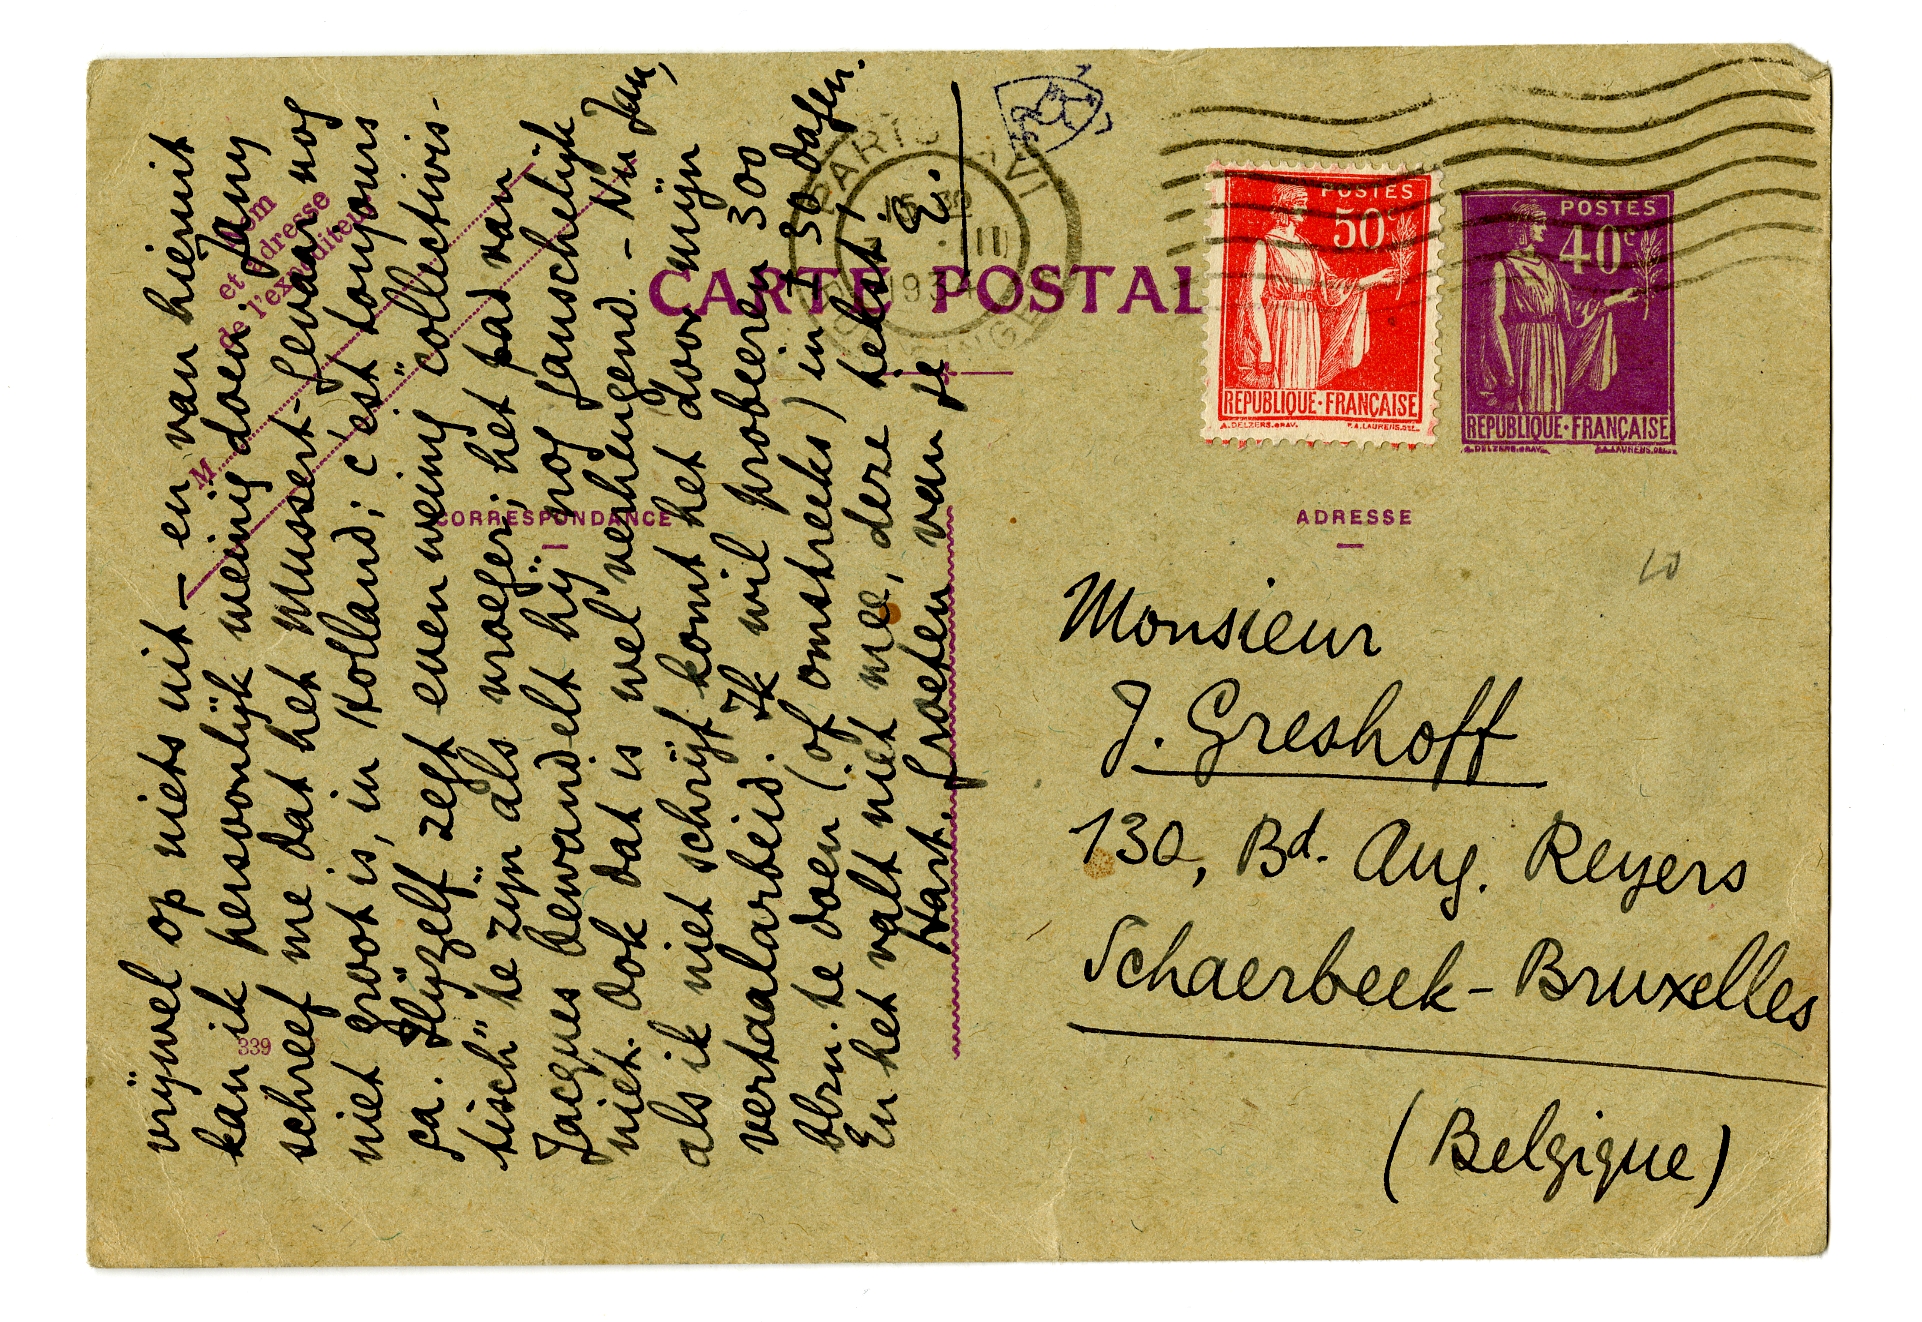 vrijwel op niets uit – en van hieruit
kan ik persoonlijk weinig doen. Jany
schreef me dat het Mussert-gevaar nog
niet groot is, in Holland; c'est toujours
ça. Hijzelf zegt even weinig "collectivis-
tisch" te zijn als vroeger; het pad van
Jacques bewandelt hij nog
niet. Ook dat is wel verheugend. – Nu Jan,
als ik niet schrijf komt het door mijn
vertaalarbeid. Ik wil probeeren 300
blzn. te doen (of omstreeks) in ± 30 dagen.
En het valt niet mee, deze tekst!
Hart. groeten van je
E.
Nom
et adresse
de l'expéditeur
M
CARTE POSTAL
CORRESPONDANCE
339
PARIS XVI
1934
POSTES
50c
REPUBLIQUE·FRANÇAISE
A.DELZERS.GRAV. P.A.LAURENS.DEL.
POSTES
40c
REPUBLIQUE·FRANÇAISE
A.DELZERS.GRAV. P.A.LAURENS.DEL.
ADRESSE
Monsieur
J. Greshoff
130, Bd. Aug. Reyers
Schaerbeek-Bruxelles
(Belgique)